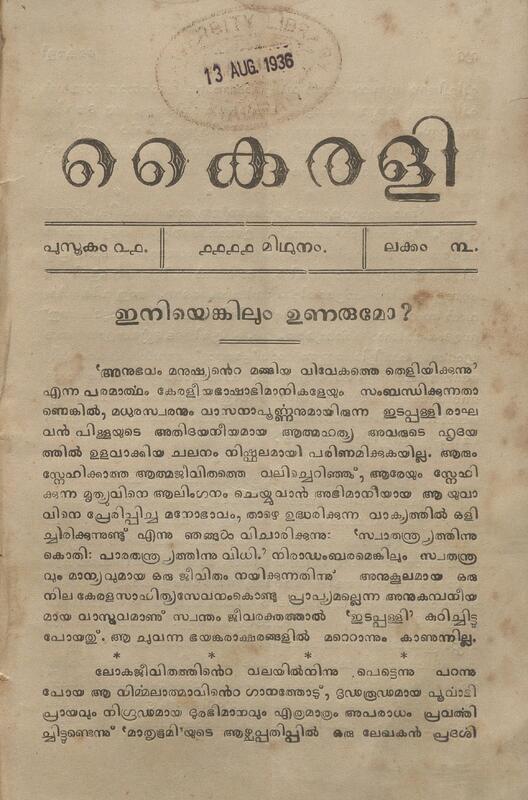 13 AUG. 1936
കൈരളി
പുസ്തകം ൨൧. ൧൧൧൧ മിഥുനം. ലക്കം ൩.
ഇനിയെങ്കിലും ഉണരുമോ?
'അനുഭവം മനുഷ്യൻറെ മങ്ങിയ വിവേകത്തെ തെളിയിക്കുന്നു'
എന്ന പരമാർത്ഥം കേരളീയഭാഷാഭിമാനികളേയും സംബന്ധിക്കുന്നതാ
ണെങ്കിൽ, മധുരസ്വരനും വാസനാപൂർണ്ണനുമായിരുന്ന ഇടപ്പള്ളി രാഘ
വൻ പിള്ളയുടെ അതിദയനീയമായ ആത്മഹത്യ അവരുടെ ഹൃദയ
ത്തിൽ ഉളവാക്കിയ ചലനം നിഷ്ഫലമായി പരിണമിക്കുകയില്ല. ആരും
സ്നേഹിക്കാത്ത ആത്മജീവിതത്തെ വലിച്ചെറിഞ്ഞു്, ആരേയും സ്നേഹി
ക്കുന്ന മൃത്യുവിനെ ആലിംഗനം ചെയ്യുവാൻ അഭിമാനിയായ ആ യുവാ
വിനെ പ്രേരിപ്പിച്ച മനോഭാവം, താഴെ ഉദ്ധരിക്കുന്ന വാക്യത്തിൽ ഒളി
ച്ചിരിക്കുന്നുണ്ടു് എന്നു ഞങ്ങൾ വിചാരിക്കുന്നു: 'സ്വാതന്ത്ര്യത്തിന്നു
കൊതി: പാരതന്ത്ര്യത്തിന്നു വിധി.' നിരാഡംബരമെങ്കിലും സ്വതന്ത്ര
വും മാന്യവുമായ ഒരു ജീവിതം നയിക്കുന്നതിന്നു് അനുകൂലമായ ഒരു
നില കേരളസാഹിത്യസേവനംകൊണ്ടു പ്രാപ്യമല്ലെന്ന അനുകമ്പനീയ
മായ വാസ്തവമാണു് സ്വന്തം ജീവരക്തത്താൽ 'ഇടപ്പള്ളി' കുറിച്ചിട്ടു
പോയതു്. ആ ചുവന്ന ഭയങ്കരാക്ഷരങ്ങളിൽ മറെറാന്നും കാണുന്നില്ല.
* * * *
ലോകജീവിതത്തിൻറെ വലയിൽനിന്നു പെട്ടെന്നു പറന്നു
പോയ ആ നിർമ്മലാത്മാവിൻറെ ഗാനത്തോടു്, ദൃഢരൂഢമായ പൂർവ്വാഭി
പ്രായവും നിഗൂഢമായ ദുരഭിമാനവും എത്രമാത്രം അപരാധം പ്രവർത്തി
ച്ചിട്ടുണ്ടെന്നു് 'മാതൃഭൂമി'യുടെ ആഴ്ചപ്പതിപ്പിൽ ഒരു ലേഖകൻ പ്രദർശി